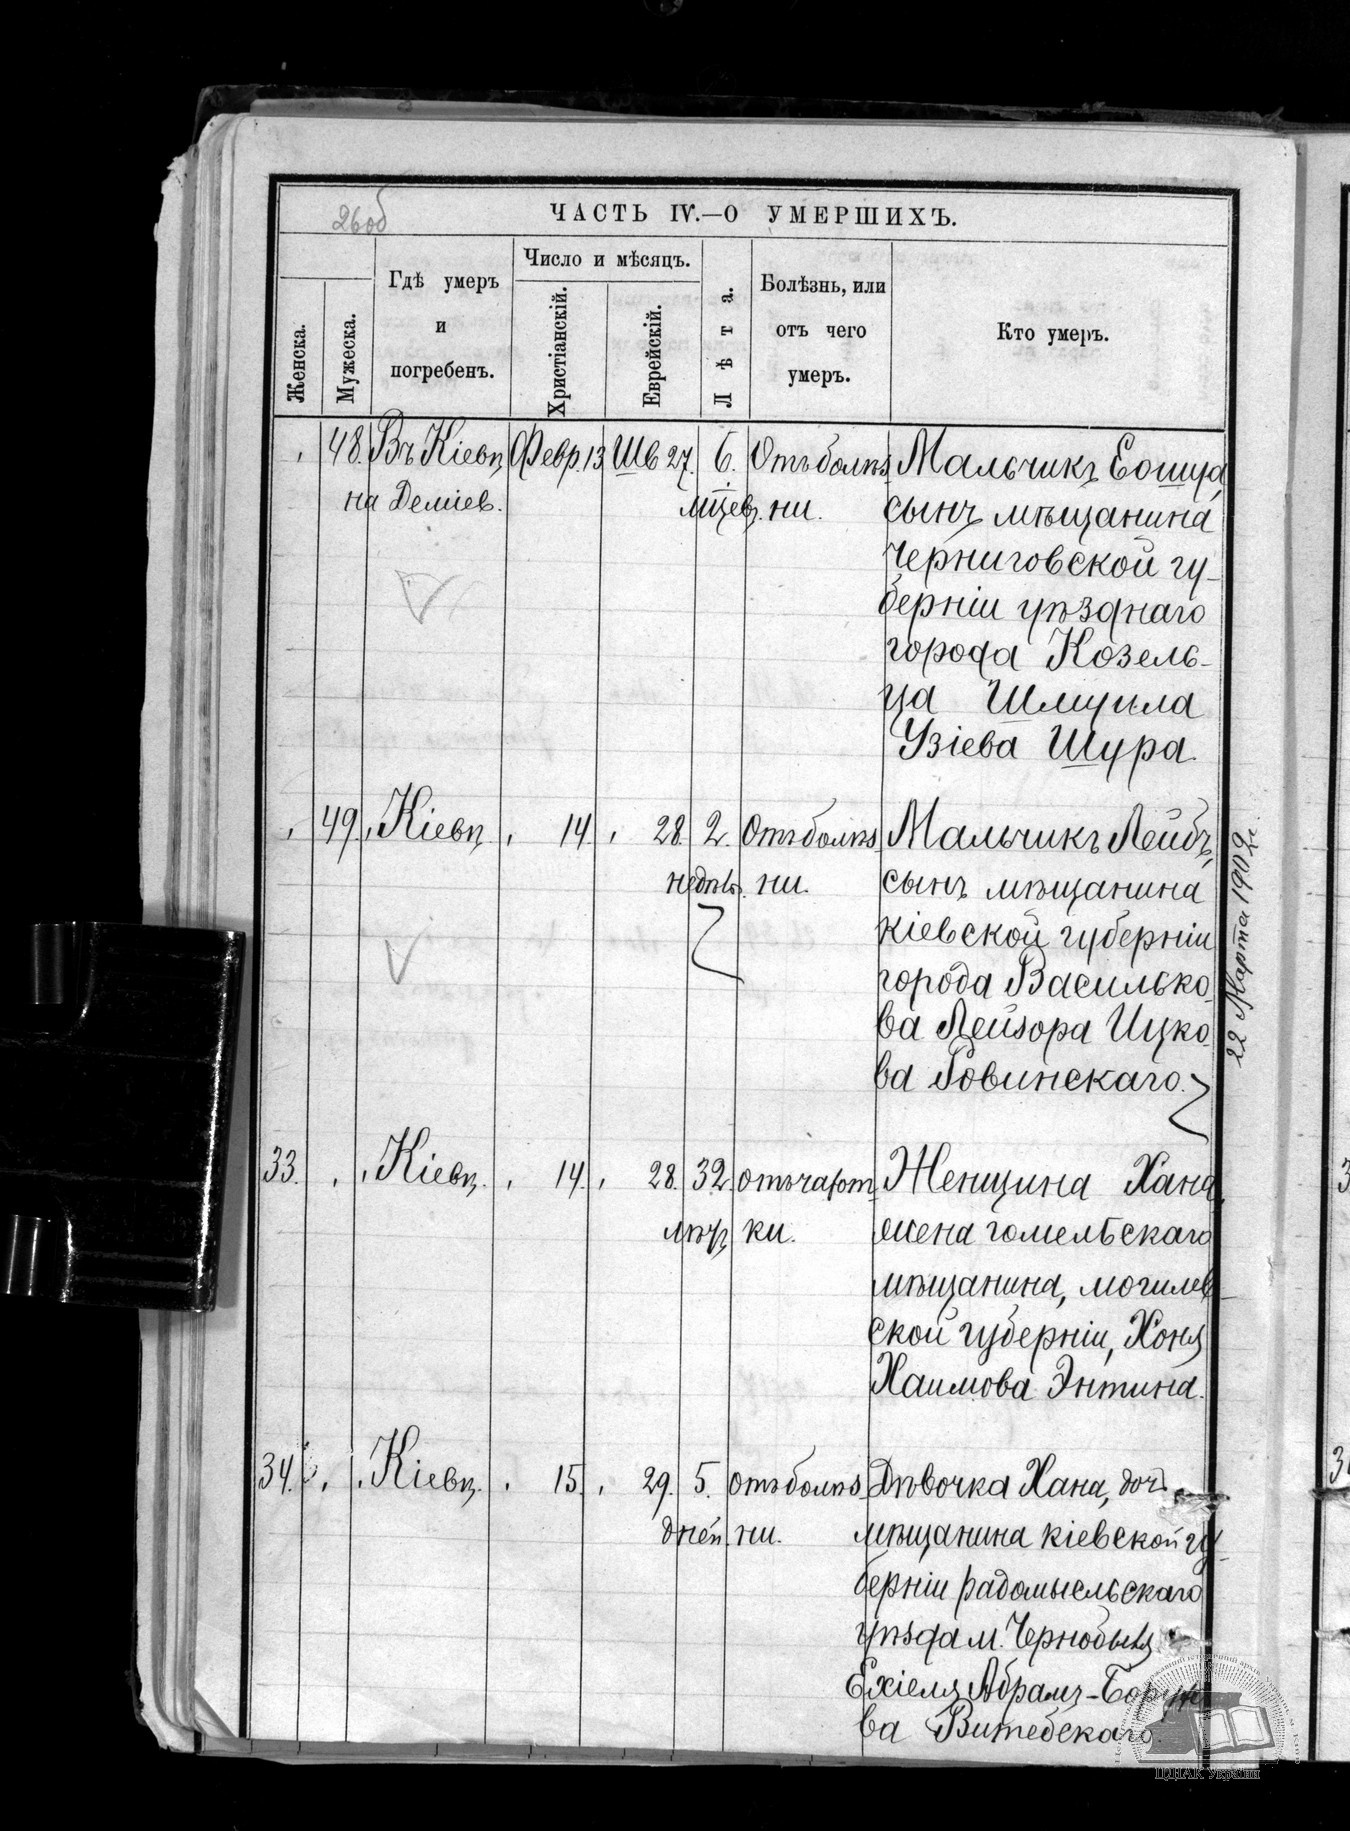 26об
ЧАСТЬ IV.—О УМЕРШИХЪ.
Женска.
Мужеска.
Гдѣ умеръ
и
погребенъ.
Число и мѣсяцъ.
Христіанскій.
Еврейскій.
Лѣта.
Болѣзнь, или
отъ чего
умеръ.
Кто умеръ.
48. Въ Кіевѣ Февр. 13 Шв 27. 6. Отъ болѣз- Мальчикъ Еошуа,
на Деміев. мѣсев. ни. сынъ мѣщанина
Черниговской гу-
берніи уѣзднаго
города Козель-
ца Шмуила
Узіева Шура.
49. Кіевѣ. 14. 28. 2. Отъ болѣз- Мальчикъ Лейбъ,
недѣль. ни. сынъ мѣщанина
кіевской губерніи
города Василько-
ва Лейзора Ицко-
ва Ровинскаго.
22 Марта 1902 г.
33. Кіевѣ. 14. 28. 32. отъ чахот- Женщина Хана,
лѣтъ ки. жена гомельскаго
мѣщанина, могилев-
ской губерніи, Хоня
Хаимова Энтина.
34. Кіевѣ. 15. 29. 5. отъ болѣз- Дѣвочка Хана, дочь
дней. ни. мѣщанина кіевской гу-
берніи радомысльскаго
уѣзда м. Чернобыля
Ехіеля Абрамъ-Борухо
ва Витебскаго.
ЦДІАК України